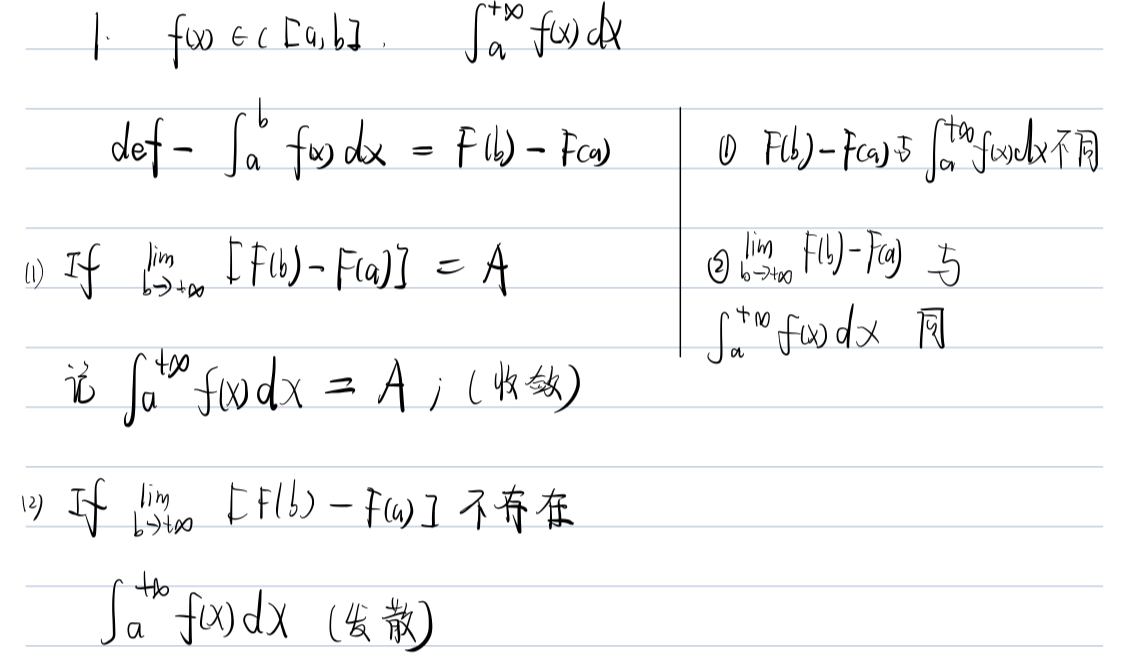 1. f(x) ∈ C [a,b]. ∫_a^{+∞} f(x) dx
def - ∫_a^b f(x) dx = F(b) - F(a)
(1) If lim_{b→+∞} [F(b) - F(a)] = A
记 ∫_a^{+∞} f(x) dx = A ; (收敛)
(2) If lim_{b→+∞} [F(b) - F(a)] 不存在
∫_a^{+∞} f(x) dx (发散)
① F(b) - F(a) 与 ∫_a^{+∞} f(x) dx 不同
② lim_{b→+∞} F(b) - F(a) 与
∫_a^{+∞} f(x) dx 同